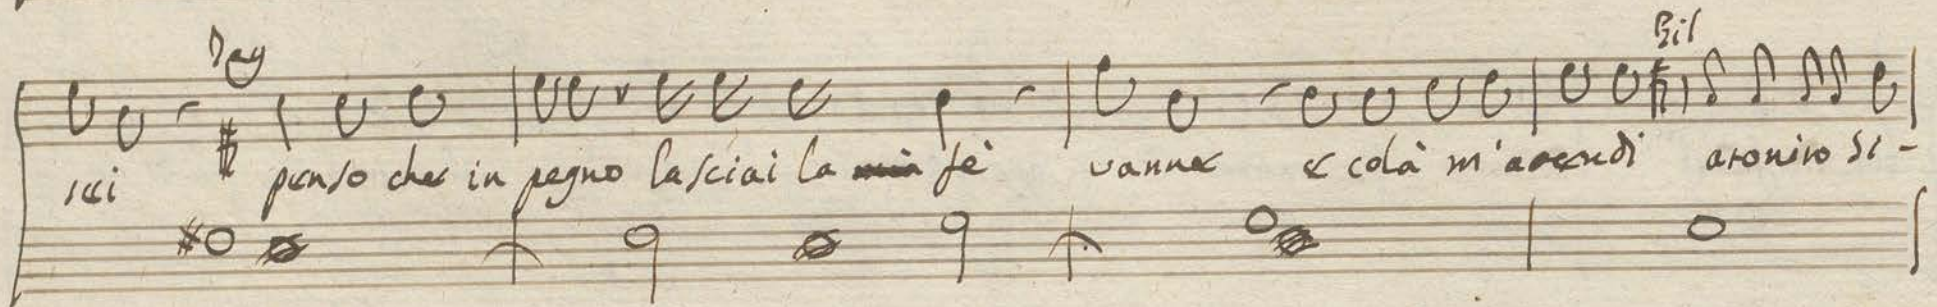 sci penso che in pegno lasciai la mia fè vanne e colà m'attendi atonito si-